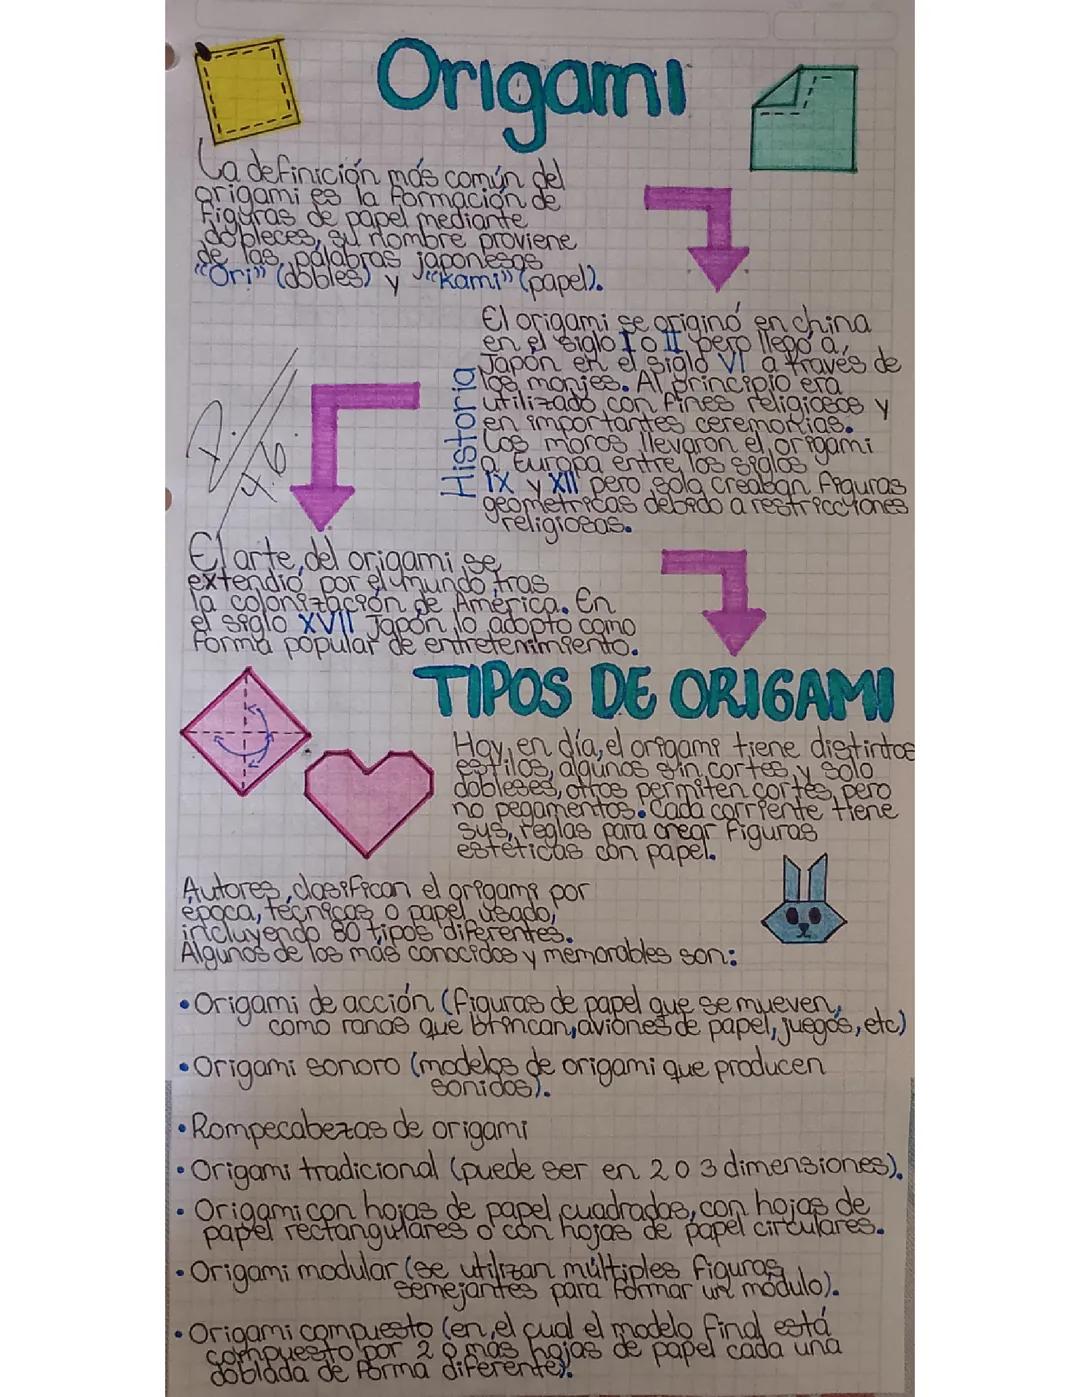 Origami
La definición más común del
origami es la formación de
figuras de papel mediante
dobleces, su nombre proviene
de las palabras japonesas
"Ori" (dobles) y "Kami" (papel).
Historia
El origami se originó en china
en el siglo I o II pero llegó a
Japón en el siglo VI a través de
los monjes. Al principio era
utilizado con fines religiosos y
en importantes ceremonias.
Los moros llevaron el origami
a Europa entre los siglos
IX y XII pero solo creaban figuras
geométricas debido a restricciones
religiosas.
El arte del origami se
extendió por el mundo tras
la colonización de América. En
el siglo XVII Japón lo adoptó como
forma popular de entretenimiento.
TIPOS DE ORIGAMI
Hoy en día, el origami tiene distintos
estilos, algunos sin cortes y solo
dobleses, otros permiten cortes, pero
no pegamentos. Cada corriente tiene
sus reglas para crear figuras
estéticas con papel.
Autores clasifican el origami por
época, técnicas o papel usado,
incluyendo 80 tipos diferentes.
Algunos de los más conocidos y memorables son:
• Origami de acción (figuras de papel que se mueven,
como ranas que brincan, aviones de papel, juegos, etc)
• Origami sonoro (modelos de origami que producen
sonidos).
• Rompecabezas de origami
• Origami tradicional (puede ser en 2 o 3 dimensiones).
• Origami con hojas de papel cuadradas, con hojas de
papel rectangulares o con hojas de papel circulares.
• Origami modular (se utilizan múltiples figuras
semejantes para formar un módulo).
• Origami compuesto (en el cual el modelo final está
compuesto por 2 o más hojas de papel cada una
doblada de forma diferente).